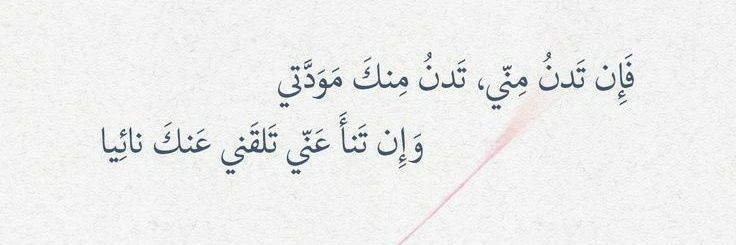 فَإِن تَدنُ مِنّي، تَدنُ مِنكَ مَوَدَّتي
وَإِن تَنأَ عَنّي تَلقَني عَنكَ نائِيا